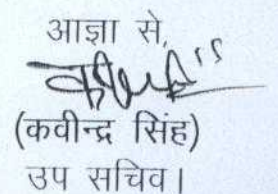 आज्ञा से,
(कवीन्द्र सिंह)
उप सचिव।